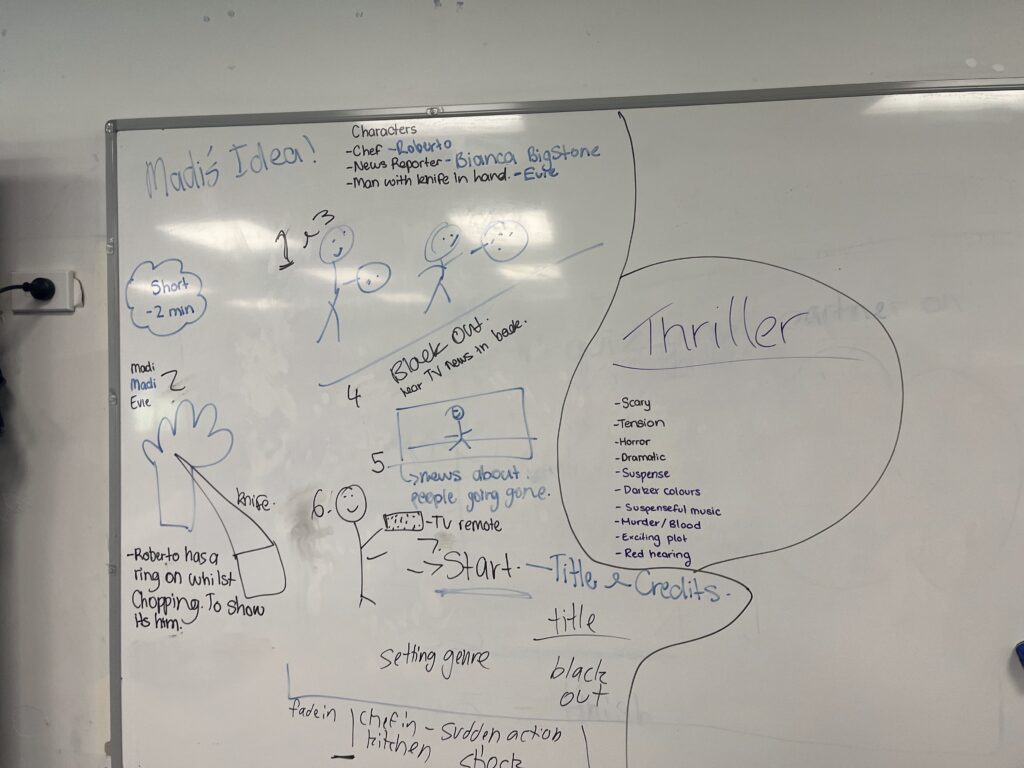 Madi's Idea!
Characters
-Chef -Roberto
-News Reporter - Bianca BigStone
-Man with knife in hand. - Evie
1 & 3
Short
-2 min
Madi
Madi
Evie
2
knife.
-Roberto has a
ring on whilst
Chopping. To show
its him.
4
Black Out.
hear TV news in back.
5
news about
people going gone.
6!
-TV remote
7.
Start. - Title & Credits.
title
setting genre
black
out
fade in
chef in - sudden action
kitchen shock
Thriller
-Scary
-Tension
-Horror
-Dramatic
-Suspense
- Darker colours
- Suspenseful music
-Murder/Blood
-Exciting plot
- Red hearing